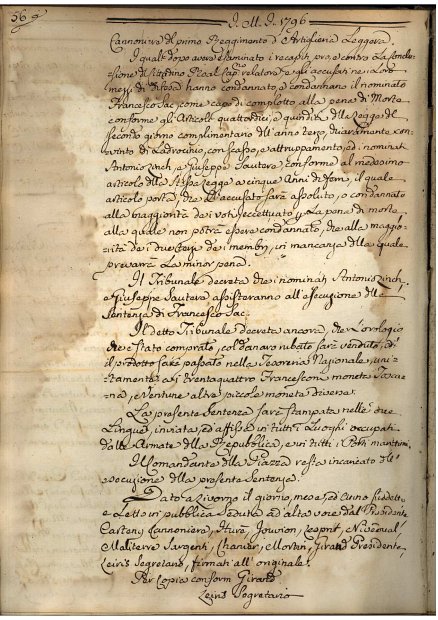 56
I. M. I. 1796
Cannoniere del primo Reggimento d'Artiglieria Leggera.
I quali dopo avere esaminato i recapiti pro, e contro La
sione di Cittadino Real Cap. relatore, e gli accusati ne i Loro
mezzi di difesa hanno condannato, e condannano il nominato
Francesco Sac come capo di complotto alla pena di Morte
conforme gli Articoli quattordici, e quindici della Legge del
secondo giorno complimentario dell'anno terzo, duaramente con
vinto di Ladrocinio, con scasso, e attruppamento, ed i nominati
Antonio Zinch, e Giuseppe Sautera conforme al medesimo
articolo della stessa Legge a cinque Anni di ferri, il quale
articolo porta, che L'accusato sarà assoluto, o condannato
alla maggiorità de i voti, eccettuato La pena di morte
alla quale non potrà essere condannato, che alla maggio-
rità de i due terzi de i membri, in mancanza della quale
prevarrà La minor pena.
Il Tribunale decreta che i nominati Antonio Zinch,
e Giuseppe Sautera assisteranno all'esecuzione della
Sentenza di Francesco Sac.
Il detto Tribunale decreta ancora, che L'orologio
che è stato comprato, col danaro rubato sarà venduto, ed
il prodotto sarà passato nella Tesoreria Nazionale, uni-
tamente a i trentaquattro Francesconi moneta Tosca-
na, e ventune altre piccole monete diverse.
La presente Sentenza sarà stampata nelle due
Lingue, inviata, ed affissa in tutti i Luoghi occupati
dalle Armate della Repubblica, e in tutti i Porti marittimi.
Il Comandante della Piazza resta incaricato dell'
esecuzione della presente Sentenza.
Dato a Livorno il giorno, mese, ed anno suddetto
e Letto in pubblica Seduta ad alta voce dal Presidente
Cannoniere, Jouvion, Lesprit,
Maliverre Sargenti, Chanier, Mortin, Girard Presidente
Leiris Segretario, firmati all'originale.
Per Copia conforme Girard
Leiris Segretario